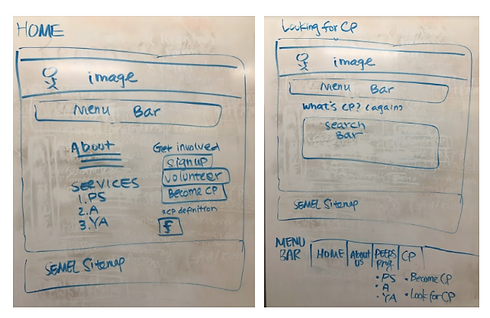 HOME
image
Menu Bar
About
Get involved
sign up
volunteer
Become CP
SERVICES
1. PS
2. A
3. YA
*CP definition
f
SEMEL Sitemap
Looking for CP
image
Menu Bar
What's CP? (again)
Search
Bar
SEMEL Sitemap
MENU
BAR
HOME
About
us
PEERS
prog.
CP
• PS
• A
• YA
• Become CP
• Look for CP